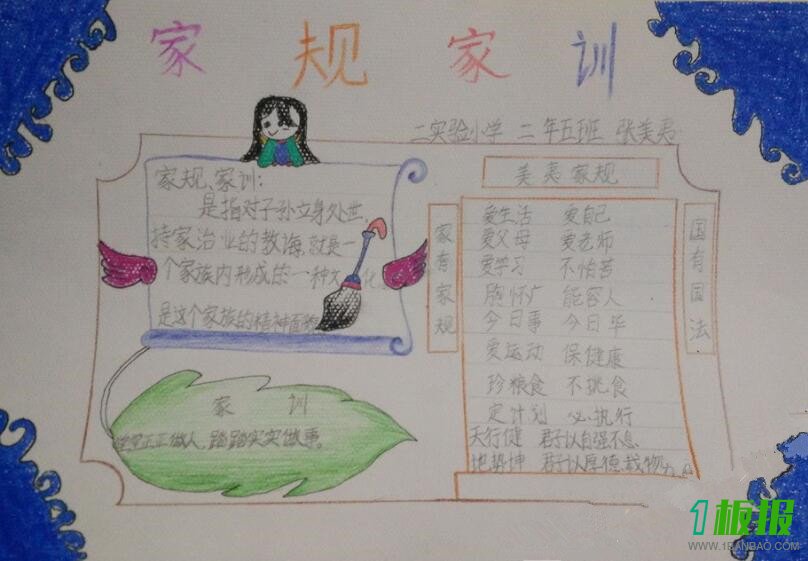 家规家训
二实验小学 二年五班 张美夷
家规、家训:
是指对子孙立身处世,
持家治业的教诲,就是一
个家族内形成的一种文化
是这个家族的精神面貌
家训
堂堂正正做人,踏踏实实做事。
美夷家规
家有家规
爱生活 爱自己
爱父母 爱老师
爱学习 不怕苦
胸怀广 能容人
今日事 今日毕
爱运动 保健康
珍粮食 不挑食
定计划 必执行
天行健 君子以自强不息
地势坤 君子以厚德载物
国有国法
1板报
WWW.1BANBAO.COM